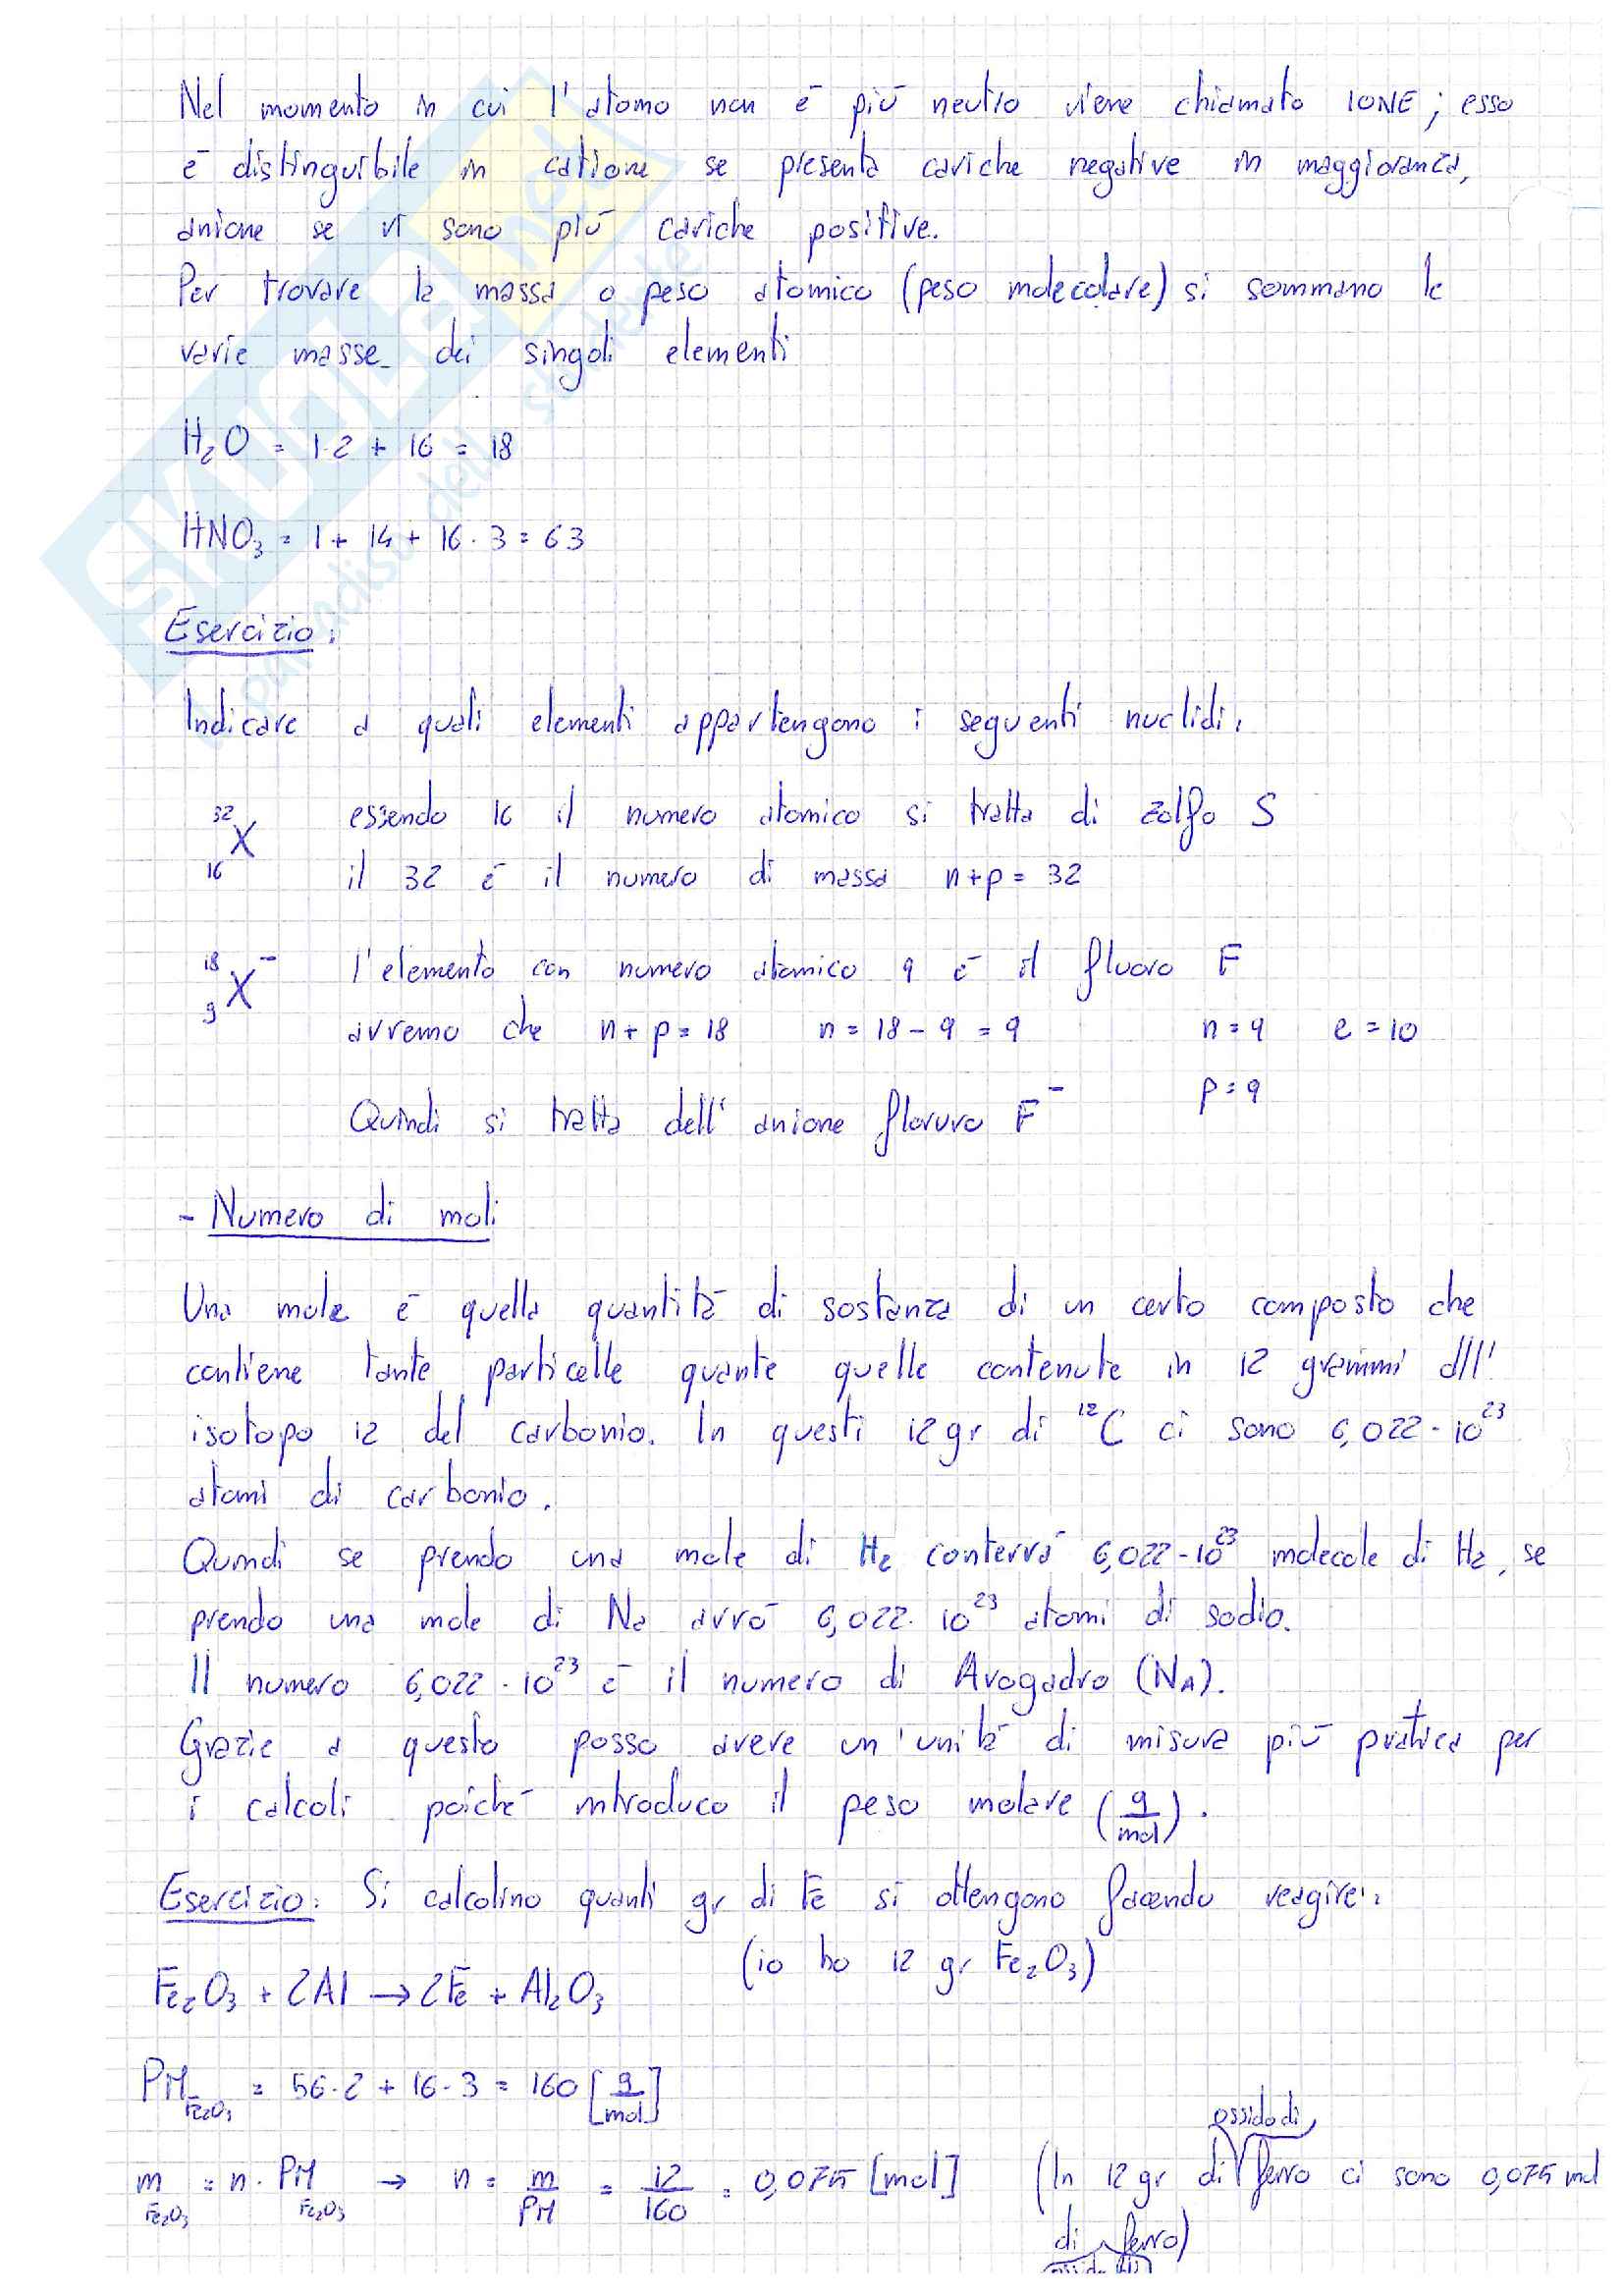 Nel momento in cui l'atomo non è più neutro viene chiamato IONE; esso
è distinguibile in catione se presenta cariche negative in maggioranza,
anione se vi sono più cariche positive.
Per trovare la massa o peso atomico (peso molecolare) si sommano le
varie masse dei singoli elementi
H₂O = 1·2 + 16 = 18
HNO₃ = 1 + 14 + 16·3 = 63
Esercizio:
Indicare a quali elementi appartengono i seguenti nuclidi:
³²₁₆X essendo 16 il numero atomico si tratta di zolfo S
il 32 è il numero di massa n+p = 32
¹⁸₉X⁻ l'elemento con numero atomico 9 è il fluoro F
avremo che n+p = 18 n = 18 - 9 = 9 n = 9 e = 10
p = 9
Quindi si tratta dell'anione floruro F⁻
- Numero di moli
Una mole è quella quantità di sostanza di un certo composto che
contiene tante particelle quante quelle contenute in 12 grammi dll'
isotopo 12 del carbonio. In questi 12 gr di ¹²C ci sono 6,022·10²³
atomi di carbonio.
Quindi se prendo una mole di H₂ conterrà 6,022·10²³ molecole di H₂, se
prendo una mole di Na avrò 6,022·10²³ atomi di sodio.
Il numero 6,022·10²³ è il numero di Avogadro (N_A).
Grazie a questo posso avere un'unità di misura più pratica per
i calcoli poiché introduco il peso molare (g/mol).
Esercizio: Si calcolino quanti gr di Fe si ottengono facendo reagire:
(io ho 12 gr Fe₂O₃)
Fe₂O₃ + 2Al → 2Fe + Al₂O₃
PM Fe₂O₃ = 56·2 + 16·3 = 160 [g/mol]
ossido di
m Fe₂O₃ = n · PM Fe₂O₃ → n = m/PM = 12/160 = 0,075 [mol] (In 12 gr di ferro ci sono 0,075 mol
di ferro)
ossido di
SKUOLA.net
il paradiso dello studente